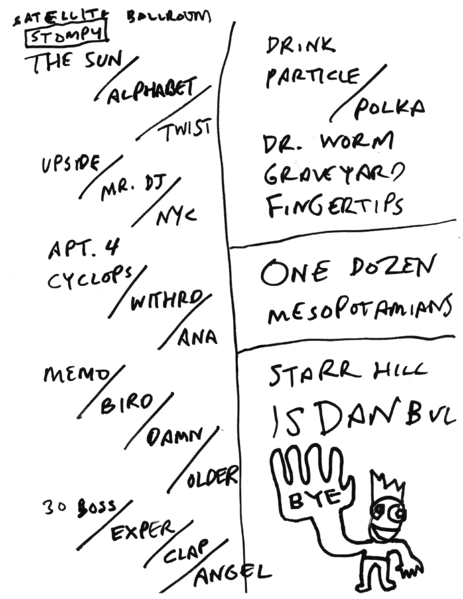 SATELLITE BALLROOM
STOMPY
THE SUN/
ALPHABET
/TWIST
UPSIDE/
MR. DJ
/NYC
APT. 4
CYCLOPS/
WITHRD/
ANA
MEMO/
BIRD/
DAMN/
OLDER
30 BOSS/
EXPER/
CLAP/
ANGEL
DRINK
PARTICLE/
POLKA
DR. WORM
GRAVEYARD
FINGERTIPS
ONE DOZEN
MESOPOTAMIANS
STARR HILL
IS DAN BUL
BYE